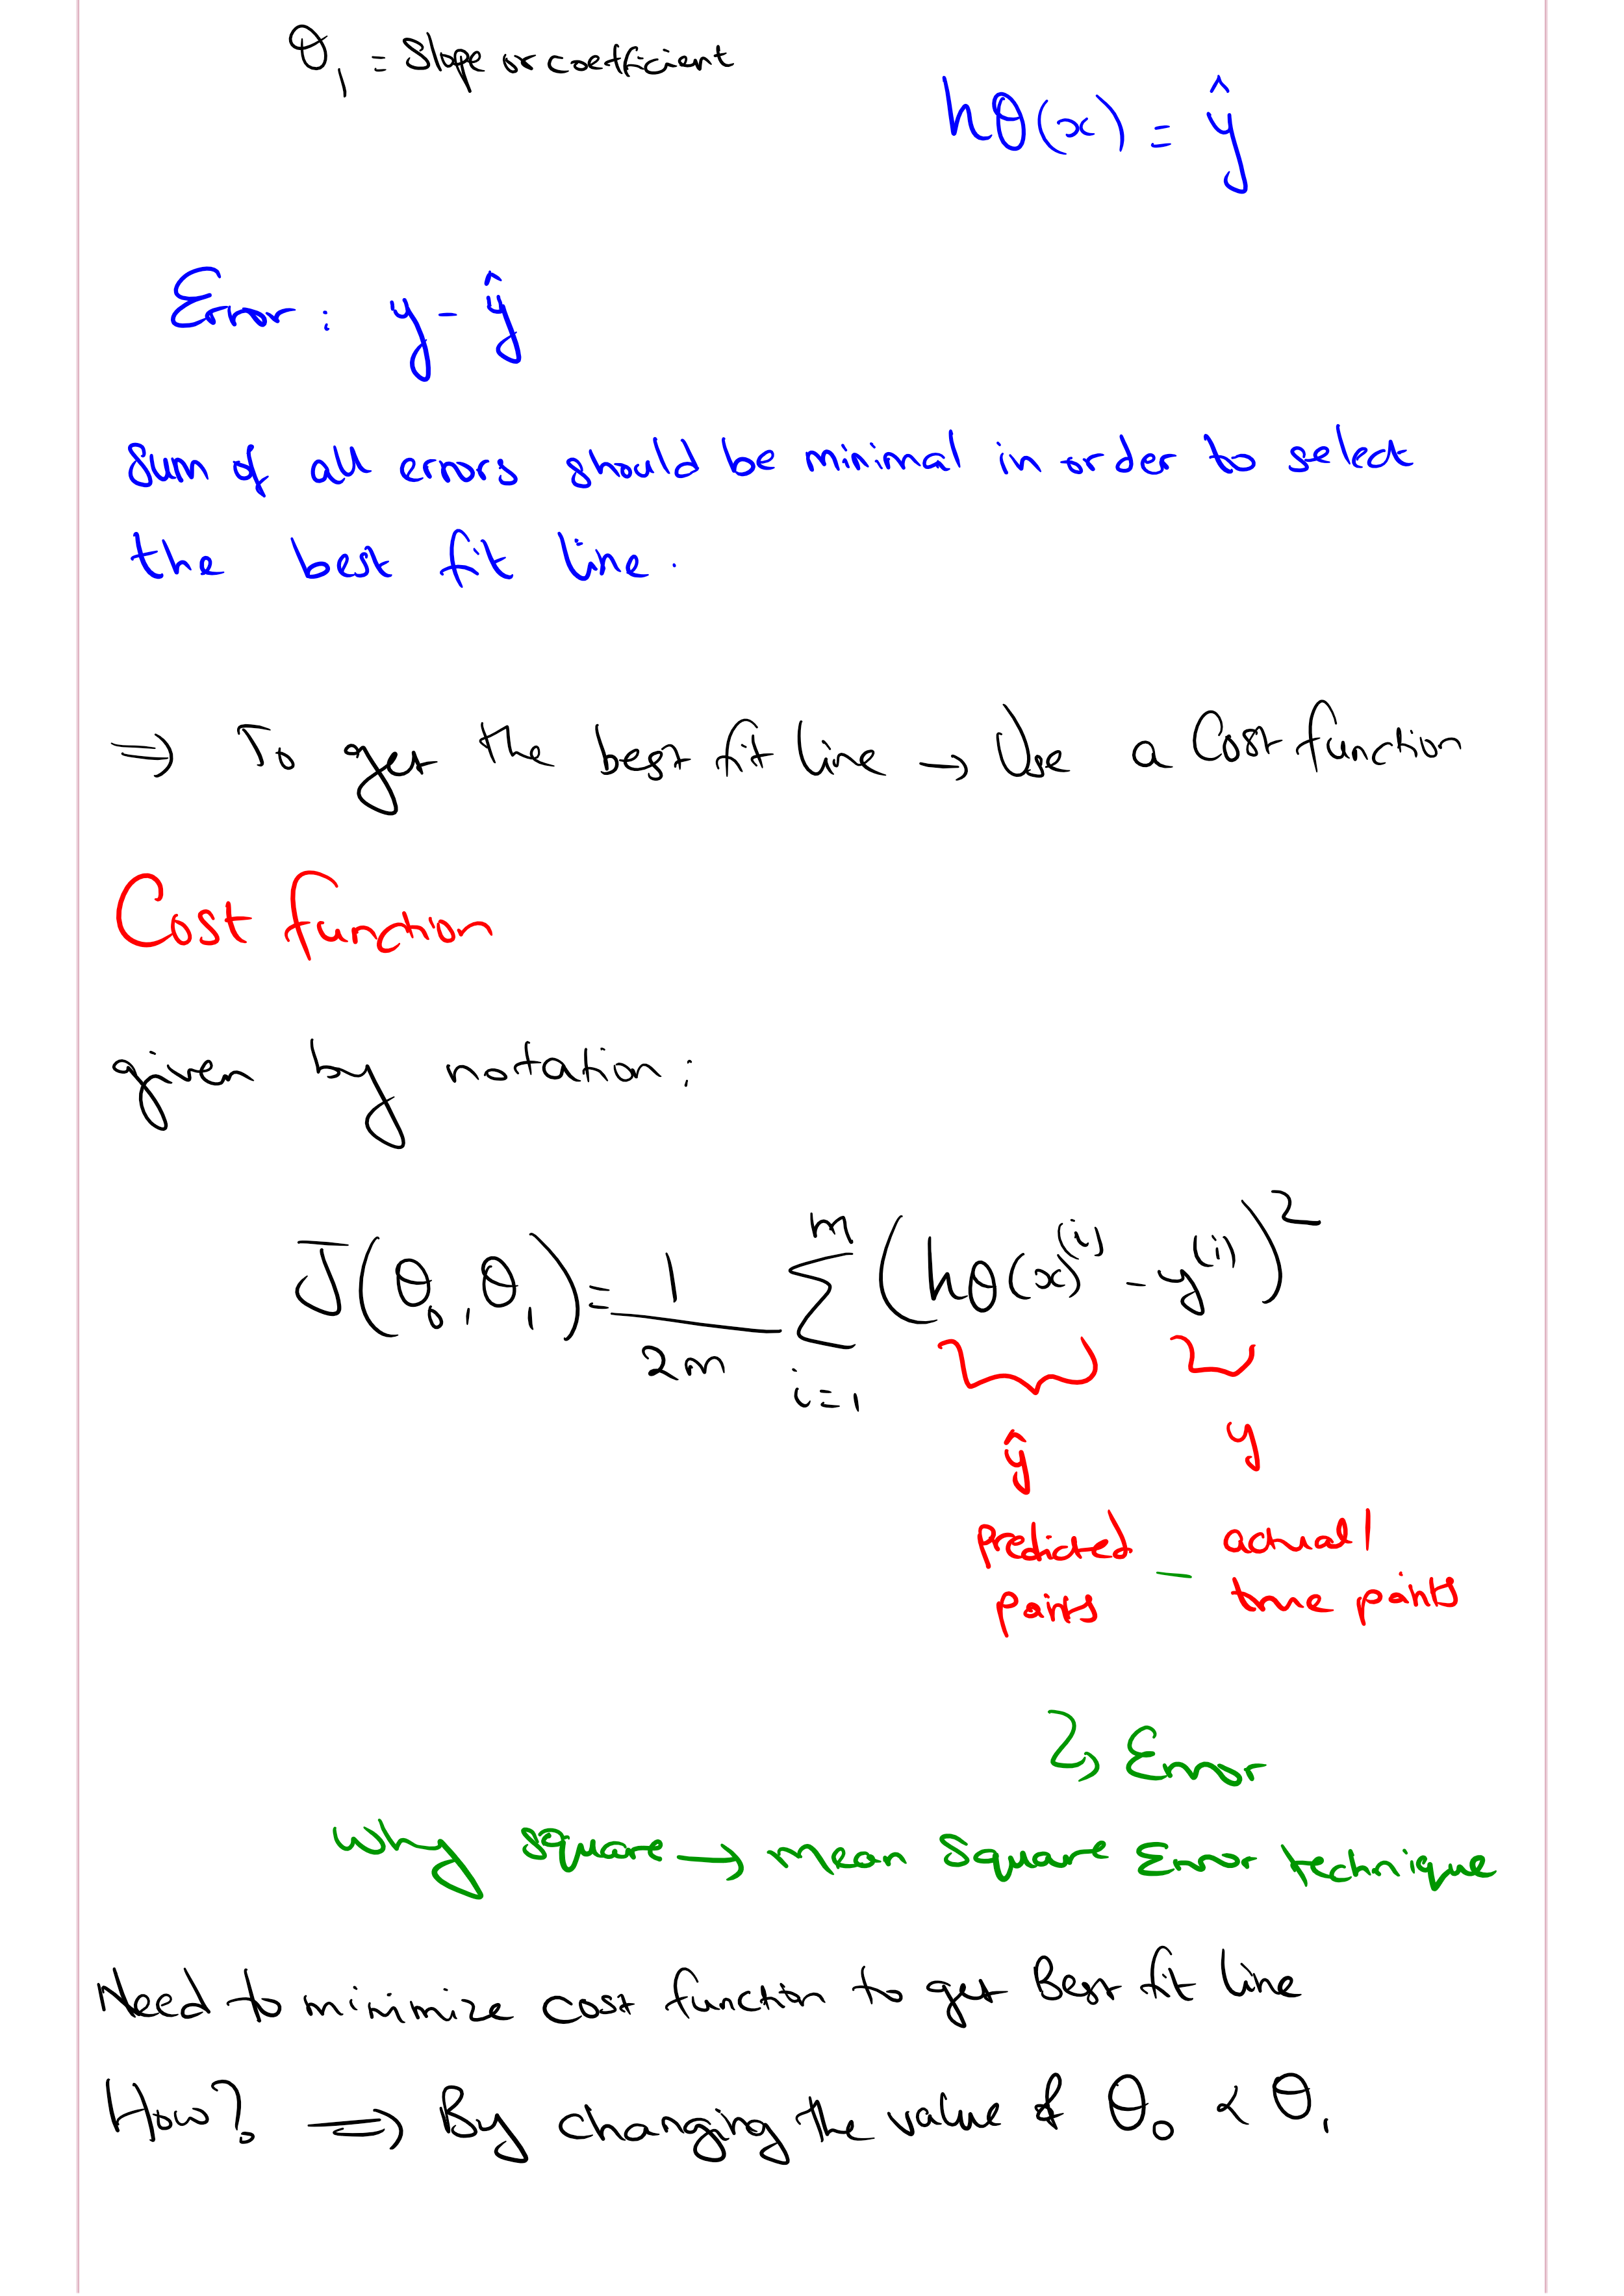 θ₁ = Slope or coefficient
hθ(x) = ŷ
Error : y - ŷ
Sum of all errors should be minimal in order to select
the best fit line.
⇒ To get the best fit line → Use a Cost function
Cost function
given by notation:
J(θ₀, θ₁) = 1/2m Σ_{i=1}^{m} (hθ(x)^{(i)} - y^{(i)})²
ŷ y
predicted points - actual / true points
↳ Error
Why square → mean square Error technique
Need to minimize cost function to get Best fit line
How? ⇒ By changing the value of θ₀ & θ₁